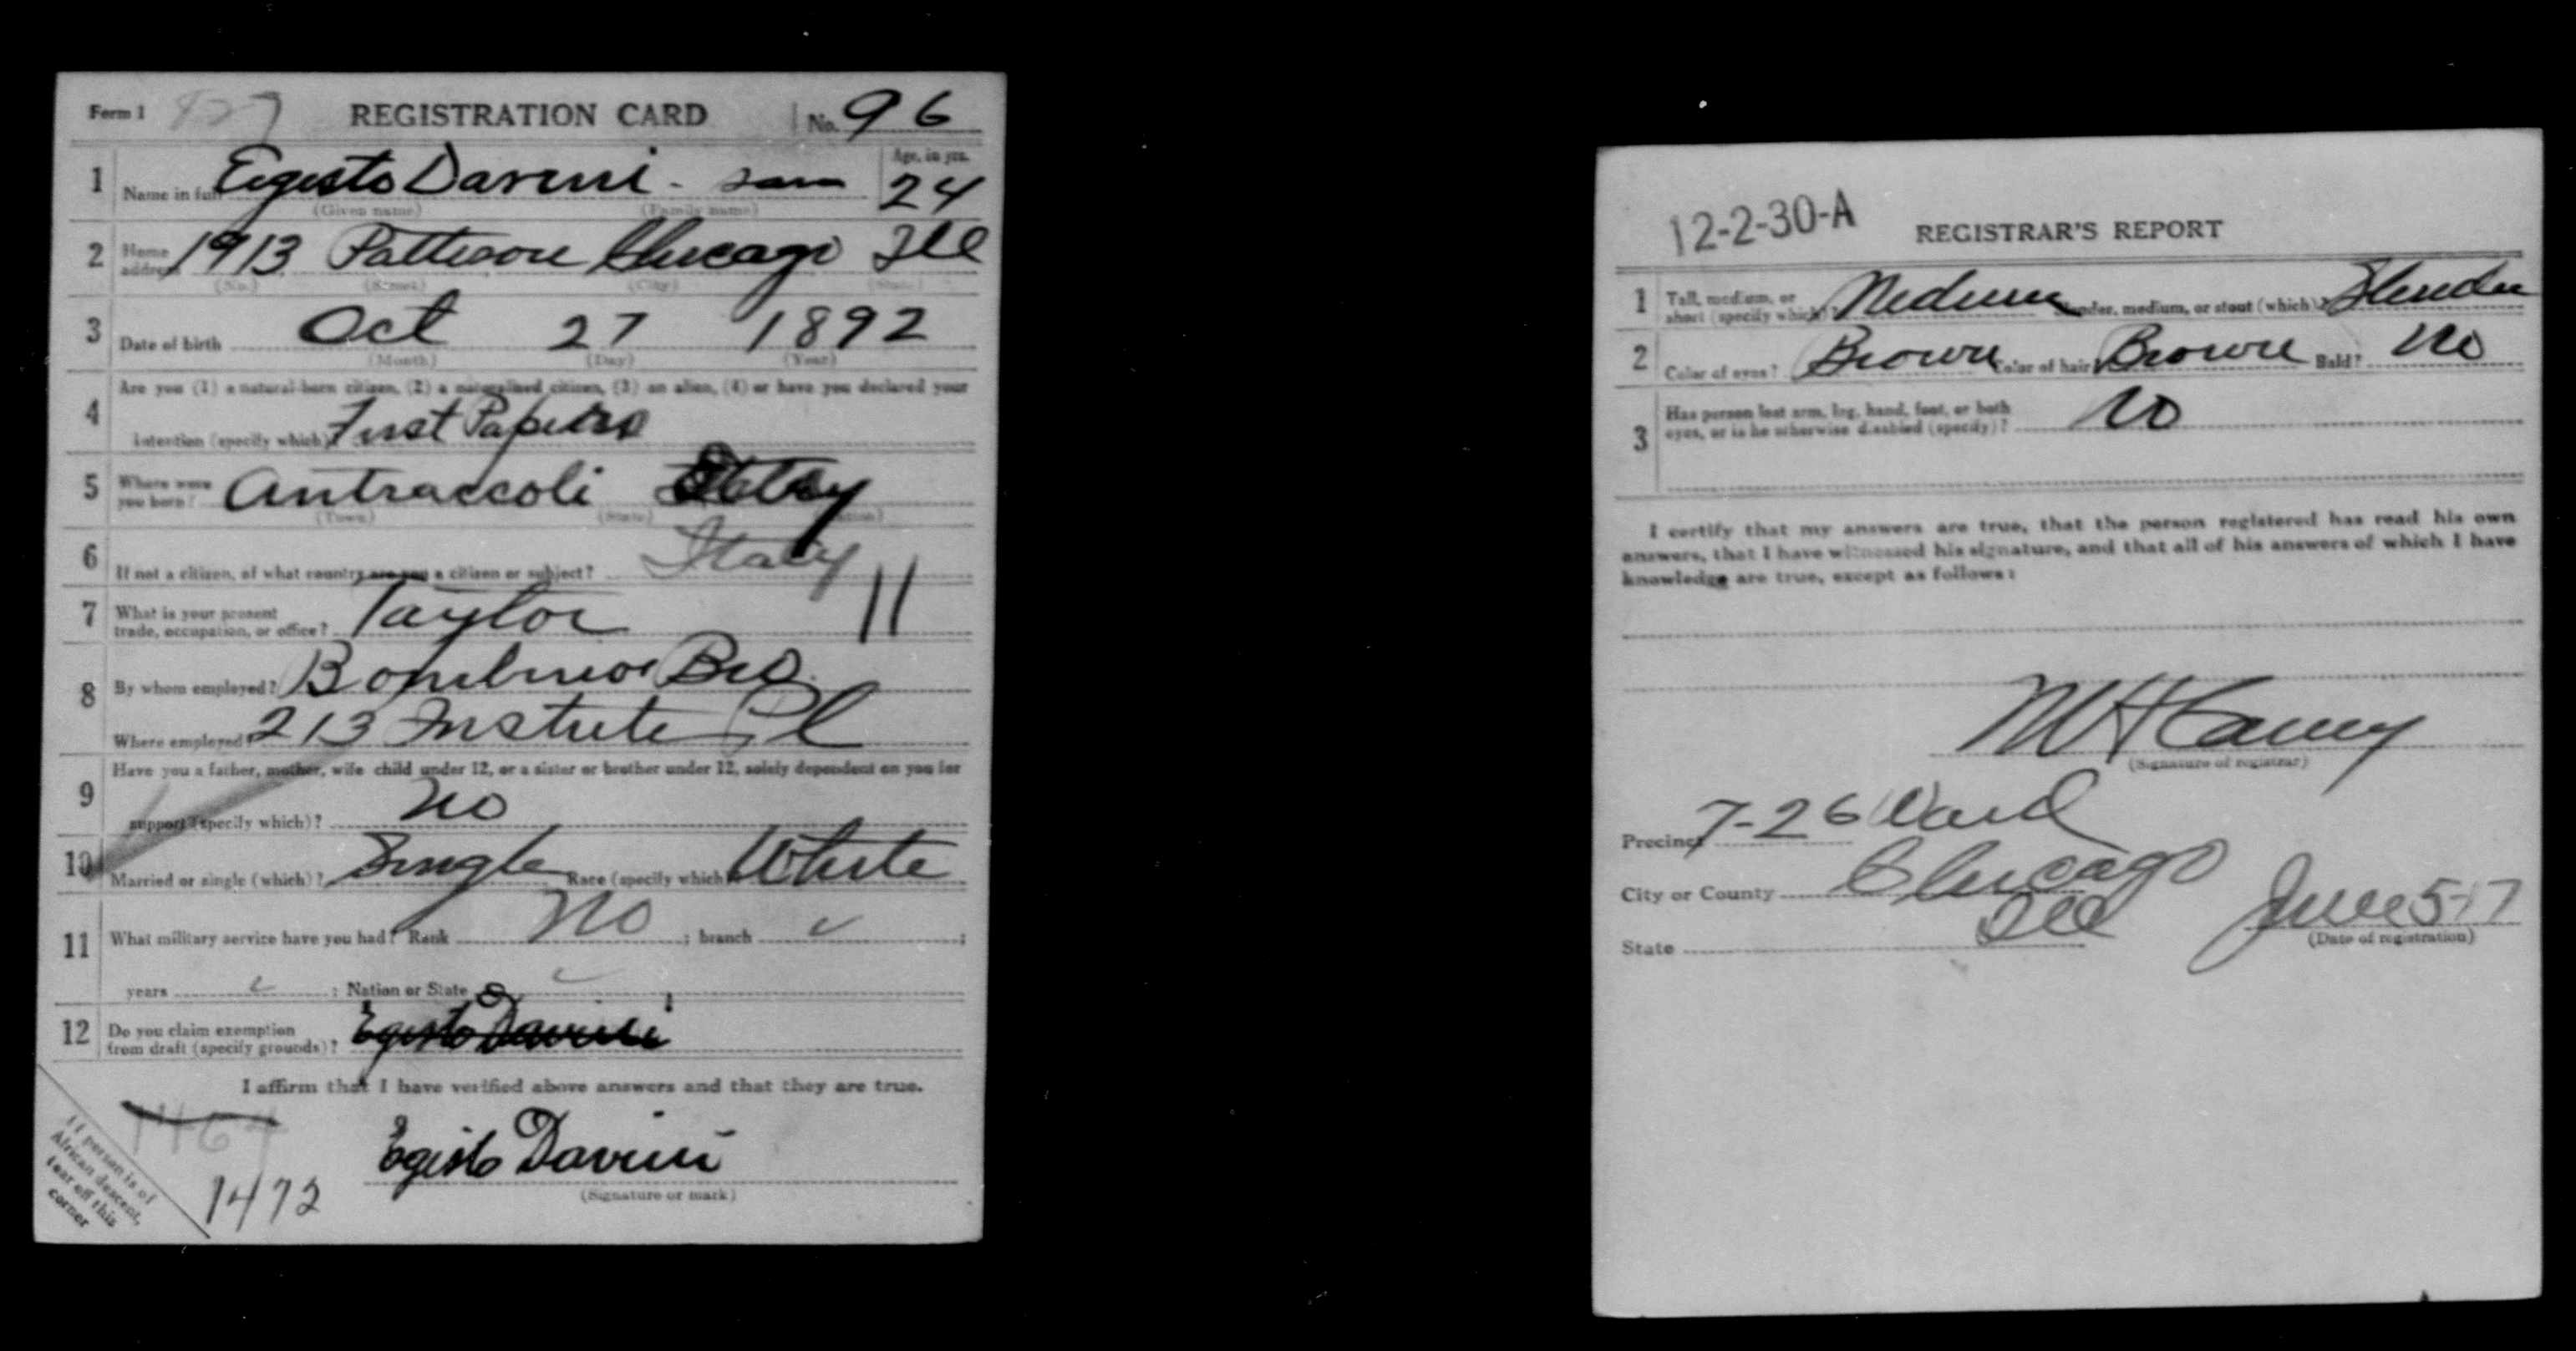 Form 1 REGISTRATION CARD No. 96
1 Name in full Egisto Davini - Sam Age, in yrs. 24
(Given name) (Family name)
2 Home address 1913 Patterson Chicago Ill
(No.) (Street) (City) (State)
3 Date of birth Oct 27 1892
(Month) (Day) (Year)
4 Are you (1) a natural-born citizen, (2) a naturalized citizen, (3) an alien, (4) or have you declared your
intention (specify which)? First Papers
5 Where were you born? Antraccoli Italy
(Town) (State) (Nation)
6 If not a citizen, of what country are you a citizen or subject? Italy
7 What is your present trade, occupation, or office? Taylor 11
8 By whom employed? Bro
Where employed? 213 Institute Pl
9 Have you a father, mother, wife child under 12, or a sister or brother under 12, solely dependent on you for
support (specify which)? No
10 Married or single (which)? Single Race (specify which) White
11 What military service have you had? Rank No ; branch ;
years ; Nation or State
12 Do you claim exemption from draft (specify grounds)? Egisto Davini
I affirm that I have verified above answers and that they are true.
1467
1472
Egisto Davini
(Signature or mark)
If person is of
African descent,
tear off this
corner
12-2-30-A REGISTRAR'S REPORT
1 Tall, medium, or short (specify which)? Medium Slender, medium, or stout (which)? Slender
2 Color of eyes? Brown Color of hair? Brown Bald? No
3 Has person lost arm, leg, hand, foot, or both
eyes, or is he otherwise disabled (specify)? No
I certify that my answers are true, that the person registered has read his own
answers, that I have witnessed his signature, and that all of his answers of which I have
knowledge are true, except as follows:
(Signature of registrar)
Precinct 7-26 Ward
City or County Chicago
State Ill June 5-17
(Date of registration)